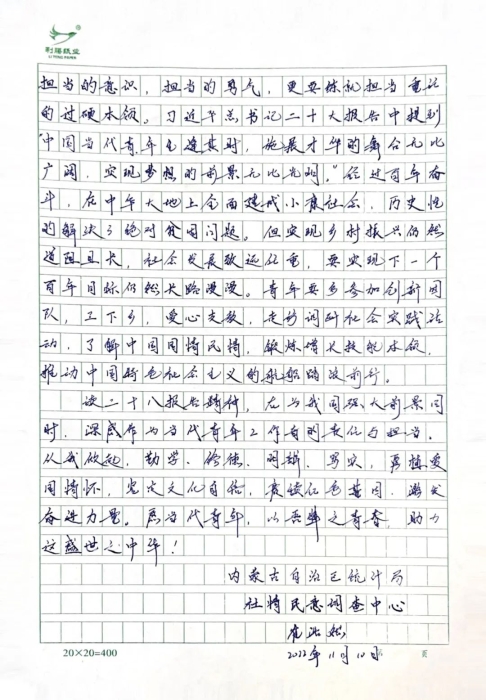 利隆纸业
LI FONG PAPER
担当的意识，担当的勇气，更要练就担当重托
的过硬本领。习近平总书记二十大报告中提到
“中国当代青年生逢其时，施展才华的舞台无比
广阔，实现梦想的前景无比光明。”经过百年奋
斗，在中华大地上全面建成小康社会，历史性
的解决了绝对贫困问题。但实现乡村振兴仍然
道阻且长，社会发展致远任重，要实现下一个
百年目标仍然长路漫漫。青年要多参加创新团
队，三下乡，爱心支教，走访调研社会实践活
动，了解中国国情民情，锻炼增长技能本领，
推动中国特色社会主义的航船踏浪前行。
读二十大报告 ，在与我国强大前景同
时，深感作为当代青年工作者的责任与担当。
从我做起，勤学、修德、明辨、笃实，厚植爱
国情怀，坚定文化自信，赓续红色基因，激发
奋进力量。愿当代青年，以吾辈之青春，助力
这盛世之中华！
内蒙古自治区统计局
社情民意调查中心
2022年11月10日
20×20=400
页